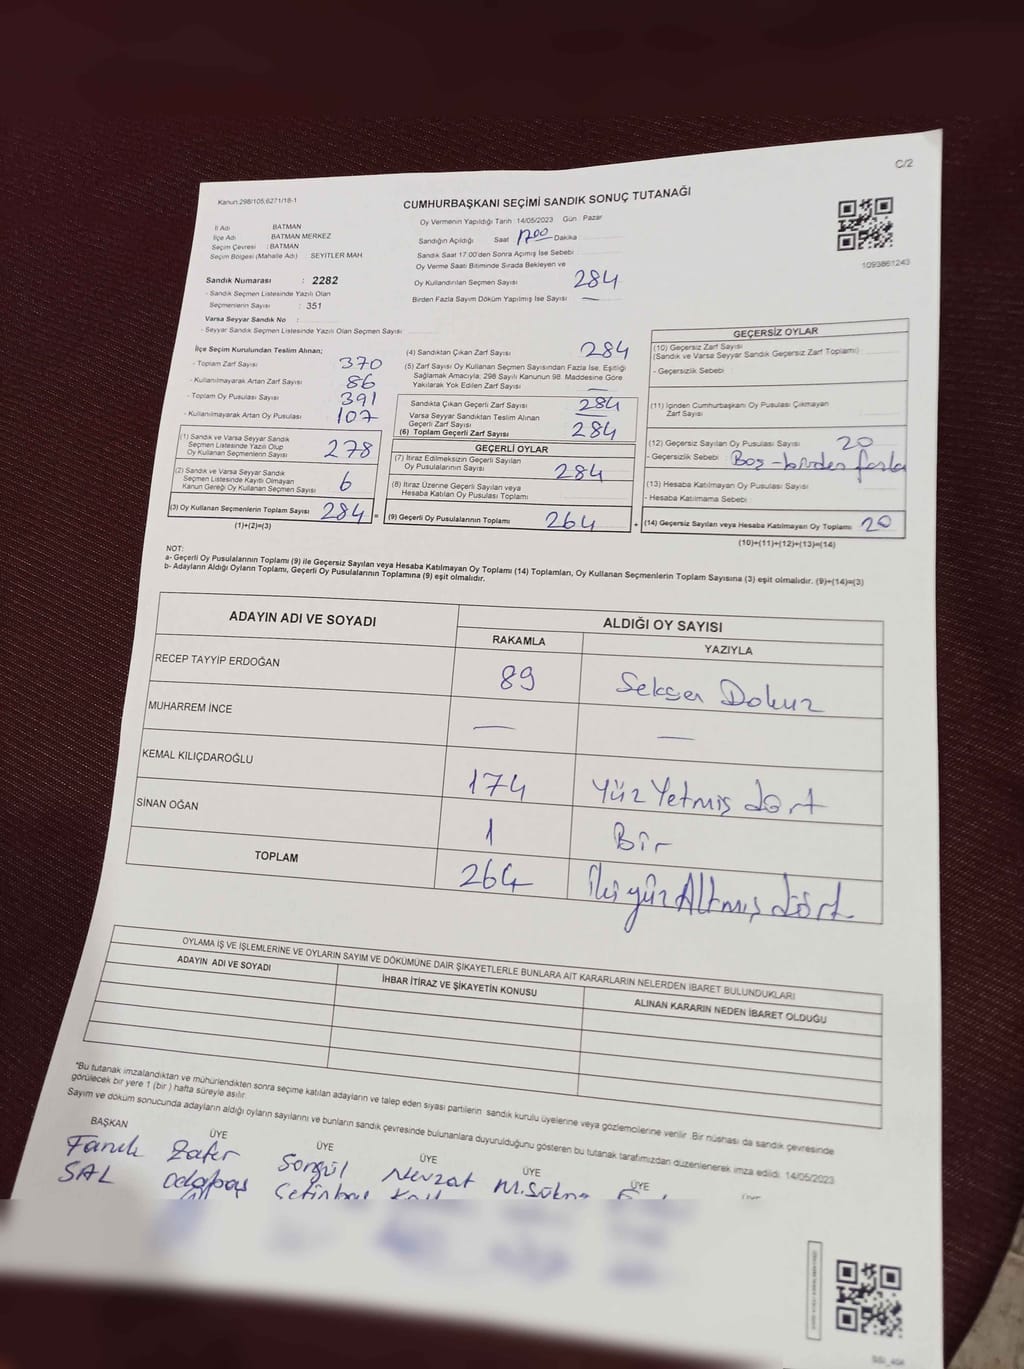 C/2
Kanun:298/105;6271/18-1
CUMHURBAŞKANI SEÇİMİ SANDIK SONUÇ TUTANAĞI
Oy Vermenin Yapıldığı Tarih :14/05/2023 Gün : Pazar
İl Adı BATMAN
İlçe Adı BATMAN MERKEZ
Seçim Çevresi : BATMAN
Seçim Bölgesi (Mahalle Adı) : SEYİTLER MAH
Sandığın Açıldığı Saat 1700 Dakika
Sandık Saat 17:00'den Sonra Açılmış İse Sebebi
Oy Verme Saati Bitiminde Sırada Bekleyen ve
Oy Kullandırılan Seçmen Sayısı 284
Birden Fazla Sayım Döküm Yapılmış İse Sayısı —
1093861243
Sandık Numarası : 2282
- Sandık Seçmen Listesinde Yazılı Olan
Seçmenlerin Sayısı : 351
Varsa Seyyar Sandık No :
- Seyyar Sandık Seçmen Listesinde Yazılı Olan Seçmen Sayısı :
İlçe Seçim Kurulundan Teslim Alınan;
- Toplam Zarf Sayısı 370
- Kullanılmayarak Artan Zarf Sayısı 86
- Toplam Oy Pusulası Sayısı 391
- Kullanılmayarak Artan Oy Pusulası 107
(1) Sandık ve Varsa Seyyar Sandık
Seçmen Listesinde Yazılı Olup
Oy Kullanan Seçmenlerin Sayısı 278
(2) Sandık ve Varsa Seyyar Sandık
Seçmen Listesinde Kayıtlı Olmayan
Kanun Gereği Oy Kullanan Seçmen Sayısı 6
(3) Oy Kullanan Seçmenlerin Toplam Sayısı 284 =
(1)+(2)=(3)
(4) Sandıktan Çıkan Zarf Sayısı 284
(5) Zarf Sayısı Oy Kullanan Seçmen Sayısından Fazla İse, Eşitliği
Sağlamak Amacıyla; 298 Sayılı Kanunun 98. Maddesine Göre
Yakılarak Yok Edilen Zarf Sayısı —
Sandıkta Çıkan Geçerli Zarf Sayısı 284
Varsa Seyyar Sandıktan Teslim Alınan
Geçerli Zarf Sayısı —
(6) Toplam Geçerli Zarf Sayısı 284
GEÇERLİ OYLAR
(7) İtiraz Edilmeksizin Geçerli Sayılan
Oy Pusulalarının Sayısı 284
(8) İtiraz Üzerine Geçerli Sayılan veya
Hesaba Katılan Oy Pusulası Toplamı
(9) Geçerli Oy Pusulalarının Toplamı 264 +
GEÇERSİZ OYLAR
(10) Geçersiz Zarf Sayısı
(Sandık ve Varsa Seyyar Sandık Geçersiz Zarf Toplamı)
- Geçersizlik Sebebi :
(11) İçinden Cumhurbaşkanı Oy Pusulası Çıkmayan
Zarf Sayısı
(12) Geçersiz Sayılan Oy Pusulası Sayısı 20
- Geçersizlik Sebebi : Boş - birden fazla
(13) Hesaba Katılmayan Oy Pusulası Sayısı
- Hesaba Katılmama Sebebi
(14) Geçersiz Sayılan veya Hesaba Katılmayan Oy Toplamı 20
(10)+(11)+(12)+(13)=(14)
NOT:
a- Geçerli Oy Pusulalarının Toplamı (9) ile Geçersiz Sayılan veya Hesaba Katılmayan Oy Toplamı (14) Toplamları, Oy Kullanan Seçmenlerin Toplam Sayısına (3) eşit olmalıdır. (9)+(14)=(3)
b- Adayların Aldığı Oyların Toplamı, Geçerli Oy Pusulalarının Toplamına (9) eşit olmalıdır.
ADAYIN ADI VE SOYADI ALDIĞI OY SAYISI
RAKAMLA YAZIYLA
RECEP TAYYİP ERDOĞAN 89 Seksen Dokuz
MUHARREM İNCE — —
KEMAL KILIÇDAROĞLU 174 Yüz Yetmiş dört
SİNAN OĞAN 1 Bir
TOPLAM 264 İkiyüz Altmış dört
OYLAMA İŞ VE İŞLEMLERİNE VE OYLARIN SAYIM VE DÖKÜMÜNE DAİR ŞİKAYETLERLE BUNLARA AİT KARARLARIN NELERDEN İBARET BULUNDUKLARI
ADAYIN ADI VE SOYADI İHBAR İTİRAZ VE ŞİKAYETİN KONUSU ALINAN KARARIN NEDEN İBARET OLDUĞU
*Bu tutanak imzalandıktan ve mühürlendikten sonra seçime katılan adayların ve talep eden siyasi partilerin sandık kurulu üyelerine veya gözlemcilerine verilir. Bir nüshası da sandık çevresinde
görülecek bir yere 1 (bir ) hafta süreyle asılır.
Sayım ve döküm sonucunda adayların aldığı oyların sayılarını ve bunların sandık çevresinde bulunanlara duyurulduğunu gösteren bu tutanak tarafımızdan düzenlenerek imza edildi. 14/05/2023
BAŞKAN ÜYE ÜYE ÜYE ÜYE ÜYE
Zafer Songül Nevzat M.
SAL